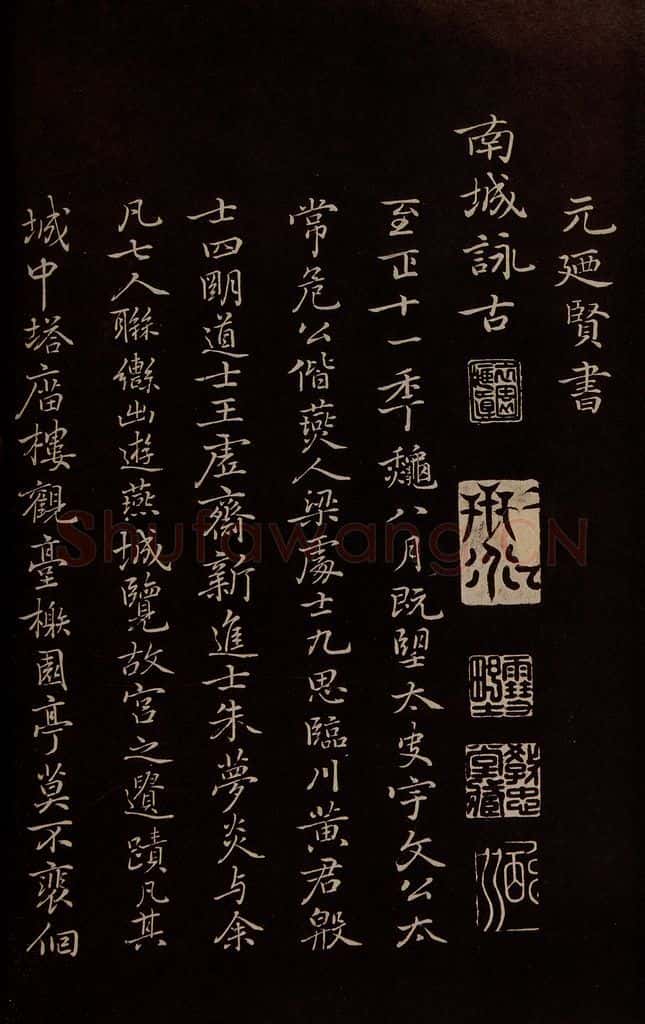 元廼賢書
南城詠古
至正十一秊龝八月既望太史宇文公太
常危公偕燕人梁處士九思臨川黃君殷
士四明道士王虛齋新進士朱夢炎与余
凡七人聯轡出遊燕城覽故宮之遺蹟凡其
城中塔廟樓觀臺榭園亭莫不裵佪
Shufawang.CN